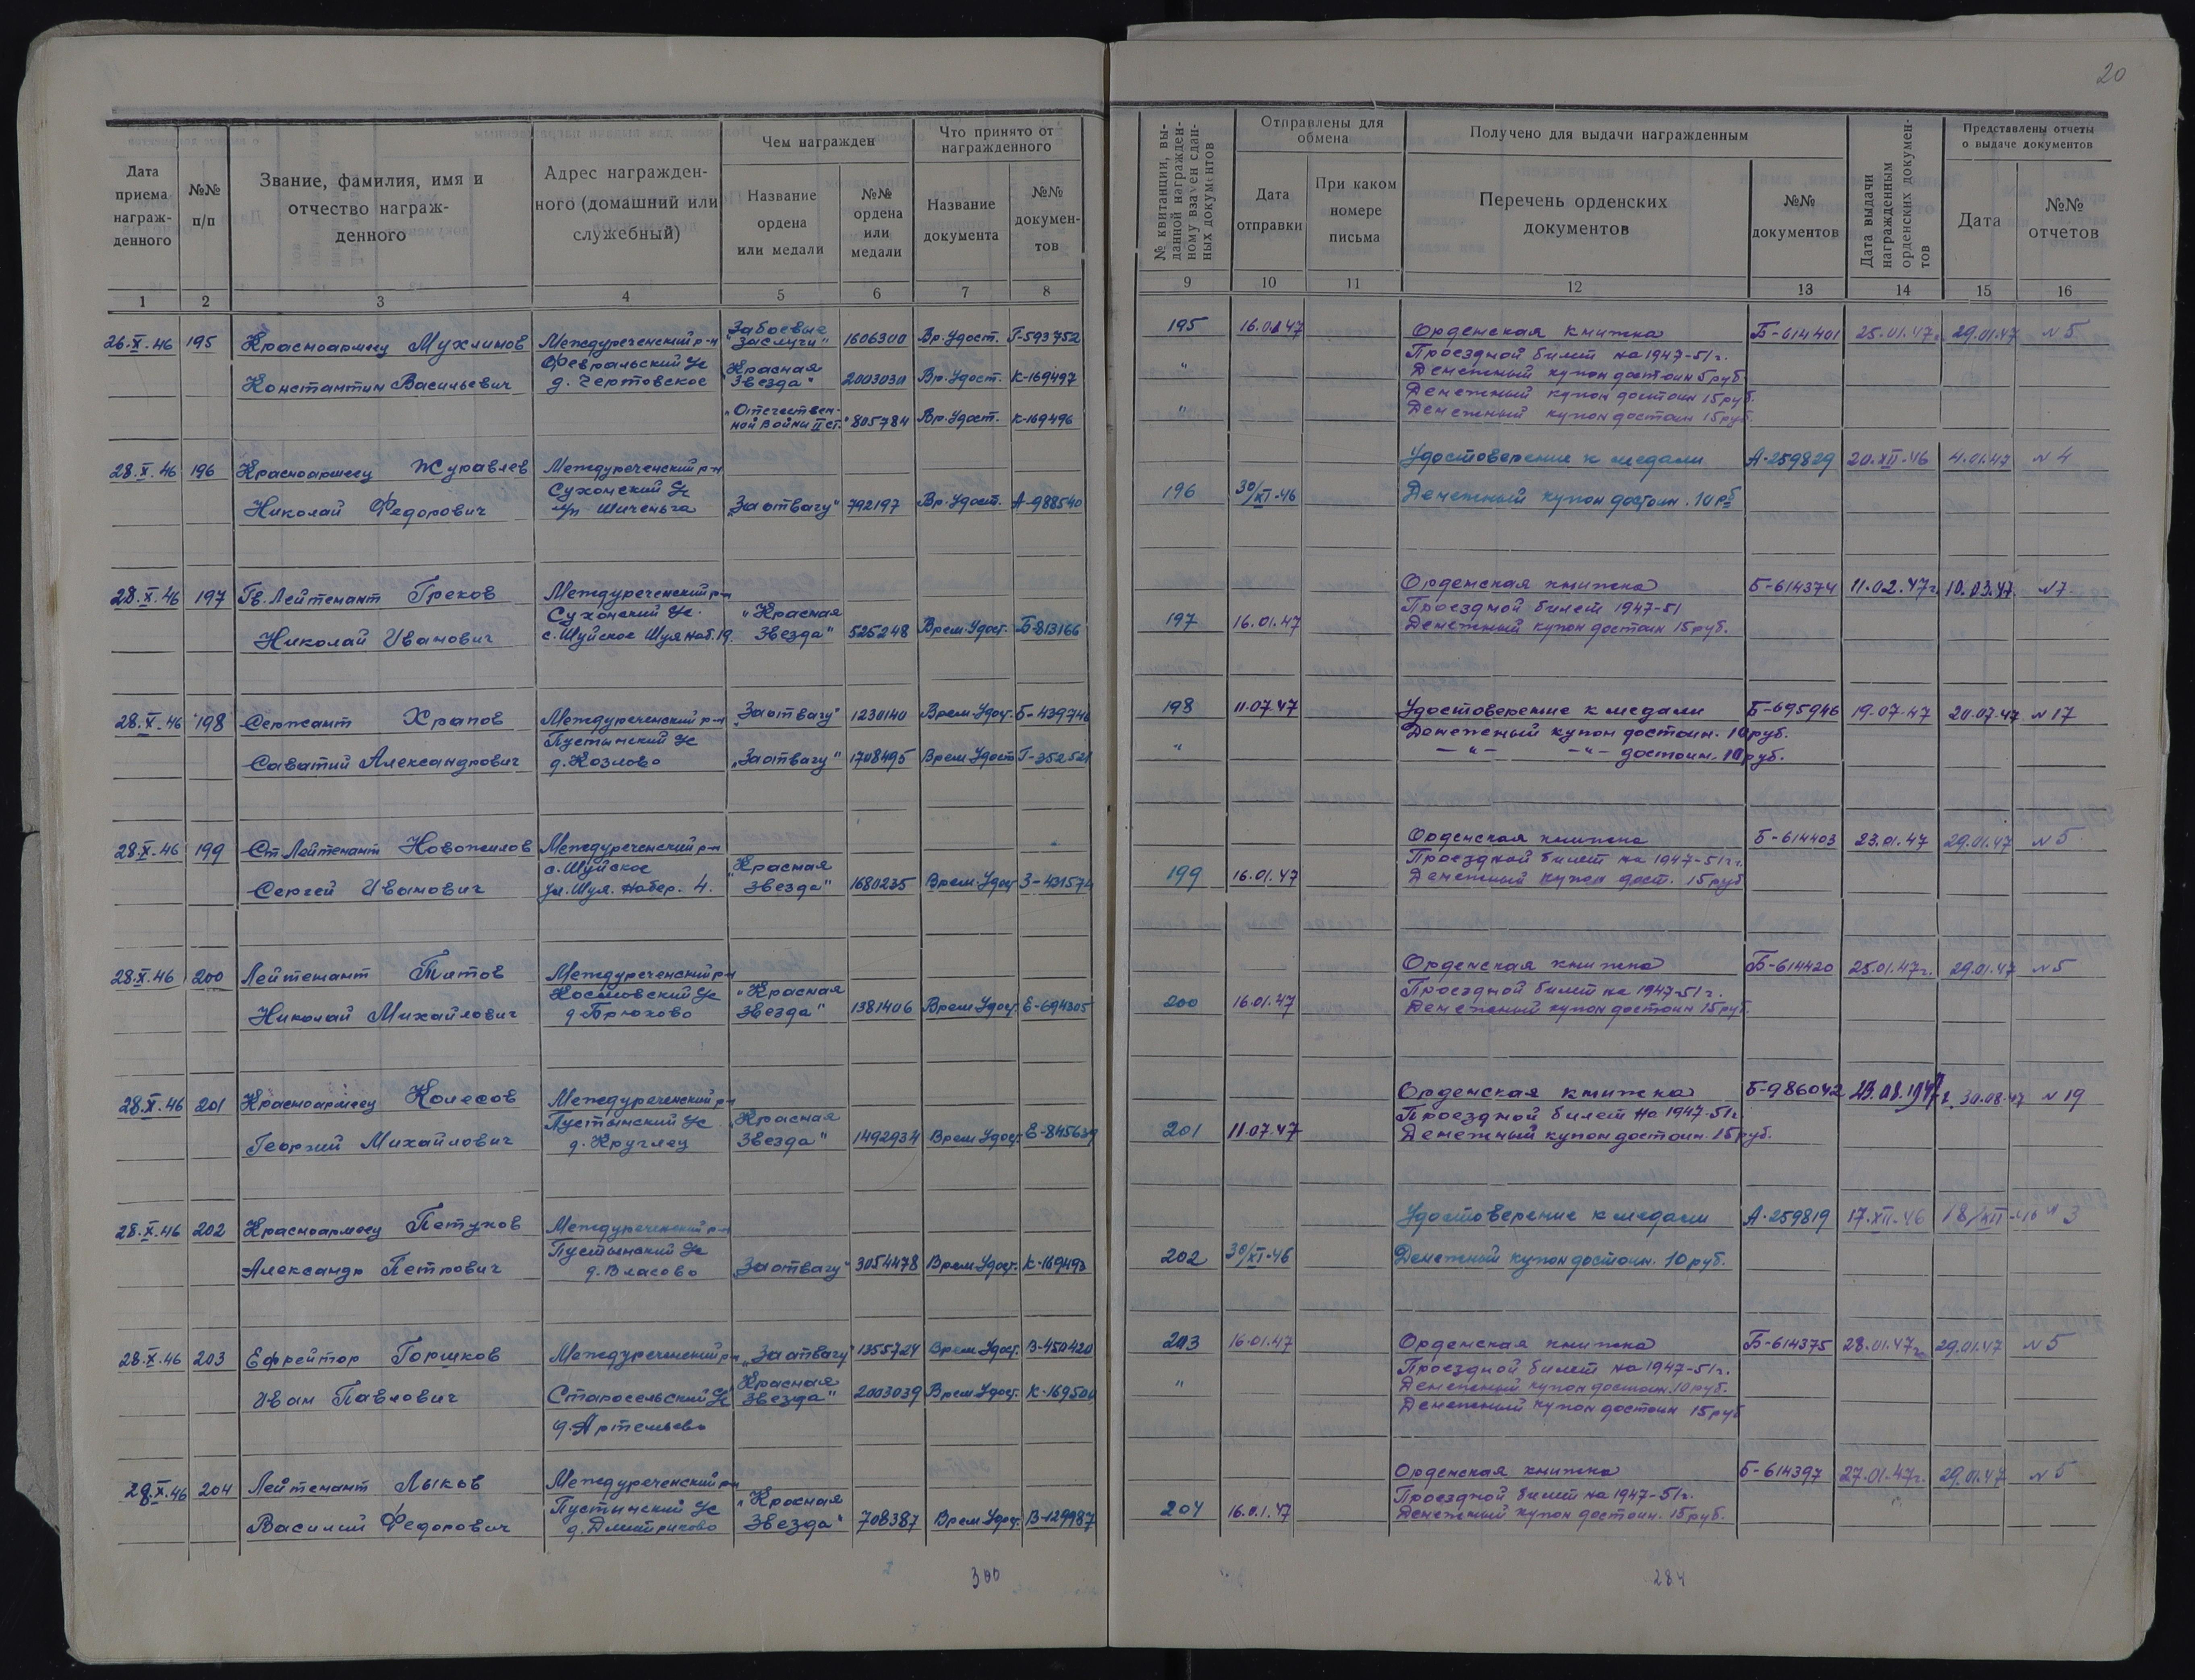 20
Дата приема награж-денного
№№ п/п
Звание, фамилия, имя и отчество награж-денного
Адрес награжден-ного (домашний или служебный)
Чем награжден
Название ордена или медали
№№ ордена или медали
Что принято от награжденного
Название документа
№№ докумен-тов
1 2 3 4 5 6 7 8
26.X.46 195 Красноармеец Мухлинов Междуреченский р-н За боевые заслуги" 1606300 Вр.Удост. Г-593752
Константин Васильевич Февральский с/с д. Чертовское Красная Звезда" 2003030 Вр.Удост. К-169497
"Отечествен-ной войны II ст." 805784 Вр.Удост. К-169496
28.X.46 196 Красноармеец Журавлев Междуреченский р-н
Николай Федорович Сухонский с/с Шиченьга "За отвагу" 792197 Вр.Удост. А-988540
28.X.46 197 Гв. Лейтенант Греков Междуреченский р-н
Николай Иванович Сухонский с/с. с. Шуйское Шуя наб. 19. "Красная Звезда" 525248 Врем.Удост. Б-813166
28.X.46 198 Сержант Храпов Междуреченский р-н "За отвагу" 1230140 Врем.Удост. Б-439746
Саватий Александрович Пустынский с/с д. Козлово "За отвагу" 1708495 Врем.Удост. Г-352521
28.X.46 199 Ст Лейтенант Новожилов Междуреченский р-н
Сергей Иванович с. Шуйское Ул. Шуя. Набер. 4. "Красная звезда" 1680235 Врем.Удост. З-431574
28.X.46 200 Лейтенант Титов Междуреченский р-н
Николай Михайлович с/с д. Брюхово "Красная Звезда" 1381406 Врем.Удост. Е-694305
28.X.46 201 Красноармеец Колесов Междуреченский р-н
Георгий Михайлович Пустынский с/с д. Круглец Красная Звезда" 1492934 Врем.Удост. Е-845639
28.X.46 202 Красноармеец Петухов Междуреченский р-н
Александр Петрович Пустынский с/с д. Власово "За отвагу" 3054478 Врем.Удост. К-169493
28.X.46 203 Ефрейтор Горшков Междуреченский р-н "За отвагу" 1355724 Врем.Удост. В-450420
Иван Павлович Старосельский с/с Красная Звезда" 2003039 Врем.Удост. К-169500
д. Артемьево
28.X.46 204 Лейтенант Лыков Междуреченский р-н
Василий Федорович Пустынский с/с д. Дмитриково "Красная Звезда" 708387 Врем.Удост. В-129987
300
№ квитанции, вы-данной награжден-ному взамен сдан-ных документов
Отправлены для обмена
Дата отправки
При каком номере письма
Получено для выдачи награжденным
Перечень орденских документов
№№ документов
Дата выдачи награжденным орденских докумен-тов
Представлены отчеты о выдаче документов
Дата
№№ отчетов
9 10 11 12 13 14 15 16
195 16.01.47 Орденская книжка Б-614401 25.01.47г. 29.01.47 N 5
Проездной билет на 1947-51г.
" Денежный купон достоин 5 руб.
Денежный купон достоин 15 руб.
" Денежный купон достоин 15 руб.
Удостоверение к медали А-259829 20.XII-46 4.01.47 N 4
196 30/XI-46 Денежный купон достоин. 10 рб
Орденская книжка Б-614374 11.02.47г. 10.03.47. N 7
Проездной билет 1947-51
197 16.01.47 Денежный купон достоин 15 руб.
198 11.07.47 Удостоверение к медали Б-695946 19.07.47 20.07.47 N 17
Денежный купон достоин. 10 руб.
" — " — — " — достоин. 10 руб.
Орденская книжка Б-614403 23.01.47 29.01.47 N 5
Проездной билет на 1947-51гг.
199 16.01.47 Денежный купон дост. 15 руб
Орденская книжка Б-614420 25.01.47г. 29.01.47 N 5
Проездной билет на 1947-51г.
200 16.01.47 Денежный купон достоин 15 руб.
Орденская книжка Б-986042 23.08.1947г. 30.08.47 N 19
Проездной билет на 1947-51г
201 11.07.47 Денежный купон достоин. 15 руб.
Удостоверение к медали А-259819 17.XII-46 18/XII-46 N 3
202 30/XI-46 Денежный купон достоин. 10 руб.
203 16.01.47 Орденская книжка Б-614375 28.01.47г. 29.01.47 N 5
Проездной билет на 1947-51г.
" Денежный купон достоин. 10 руб.
Денежный купон достоин 15 руб
Орденская книжка Б-614397 27.01.47г. 29.01.47 N 5
Проездной билет на 1947-51г.
204 16.01.47 Денежный купон достоин. 15 руб.
284